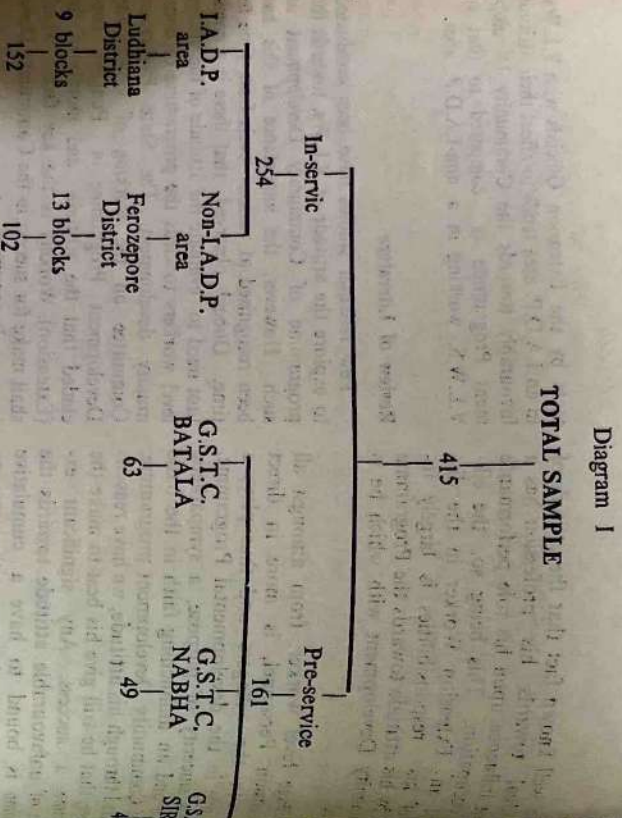 Diagram I
TOTAL SAMPLE
415
In-servic
254
Pre-service
161
I.A.D.P.
area
Ludhiana
District
9 blocks
152
Non-I.A.D.P.
area
Ferozepore
District
13 blocks
102
G.S.T.C.
BATALA
63
G.S.T.C.
NABHA
49
G.S
SIR
4